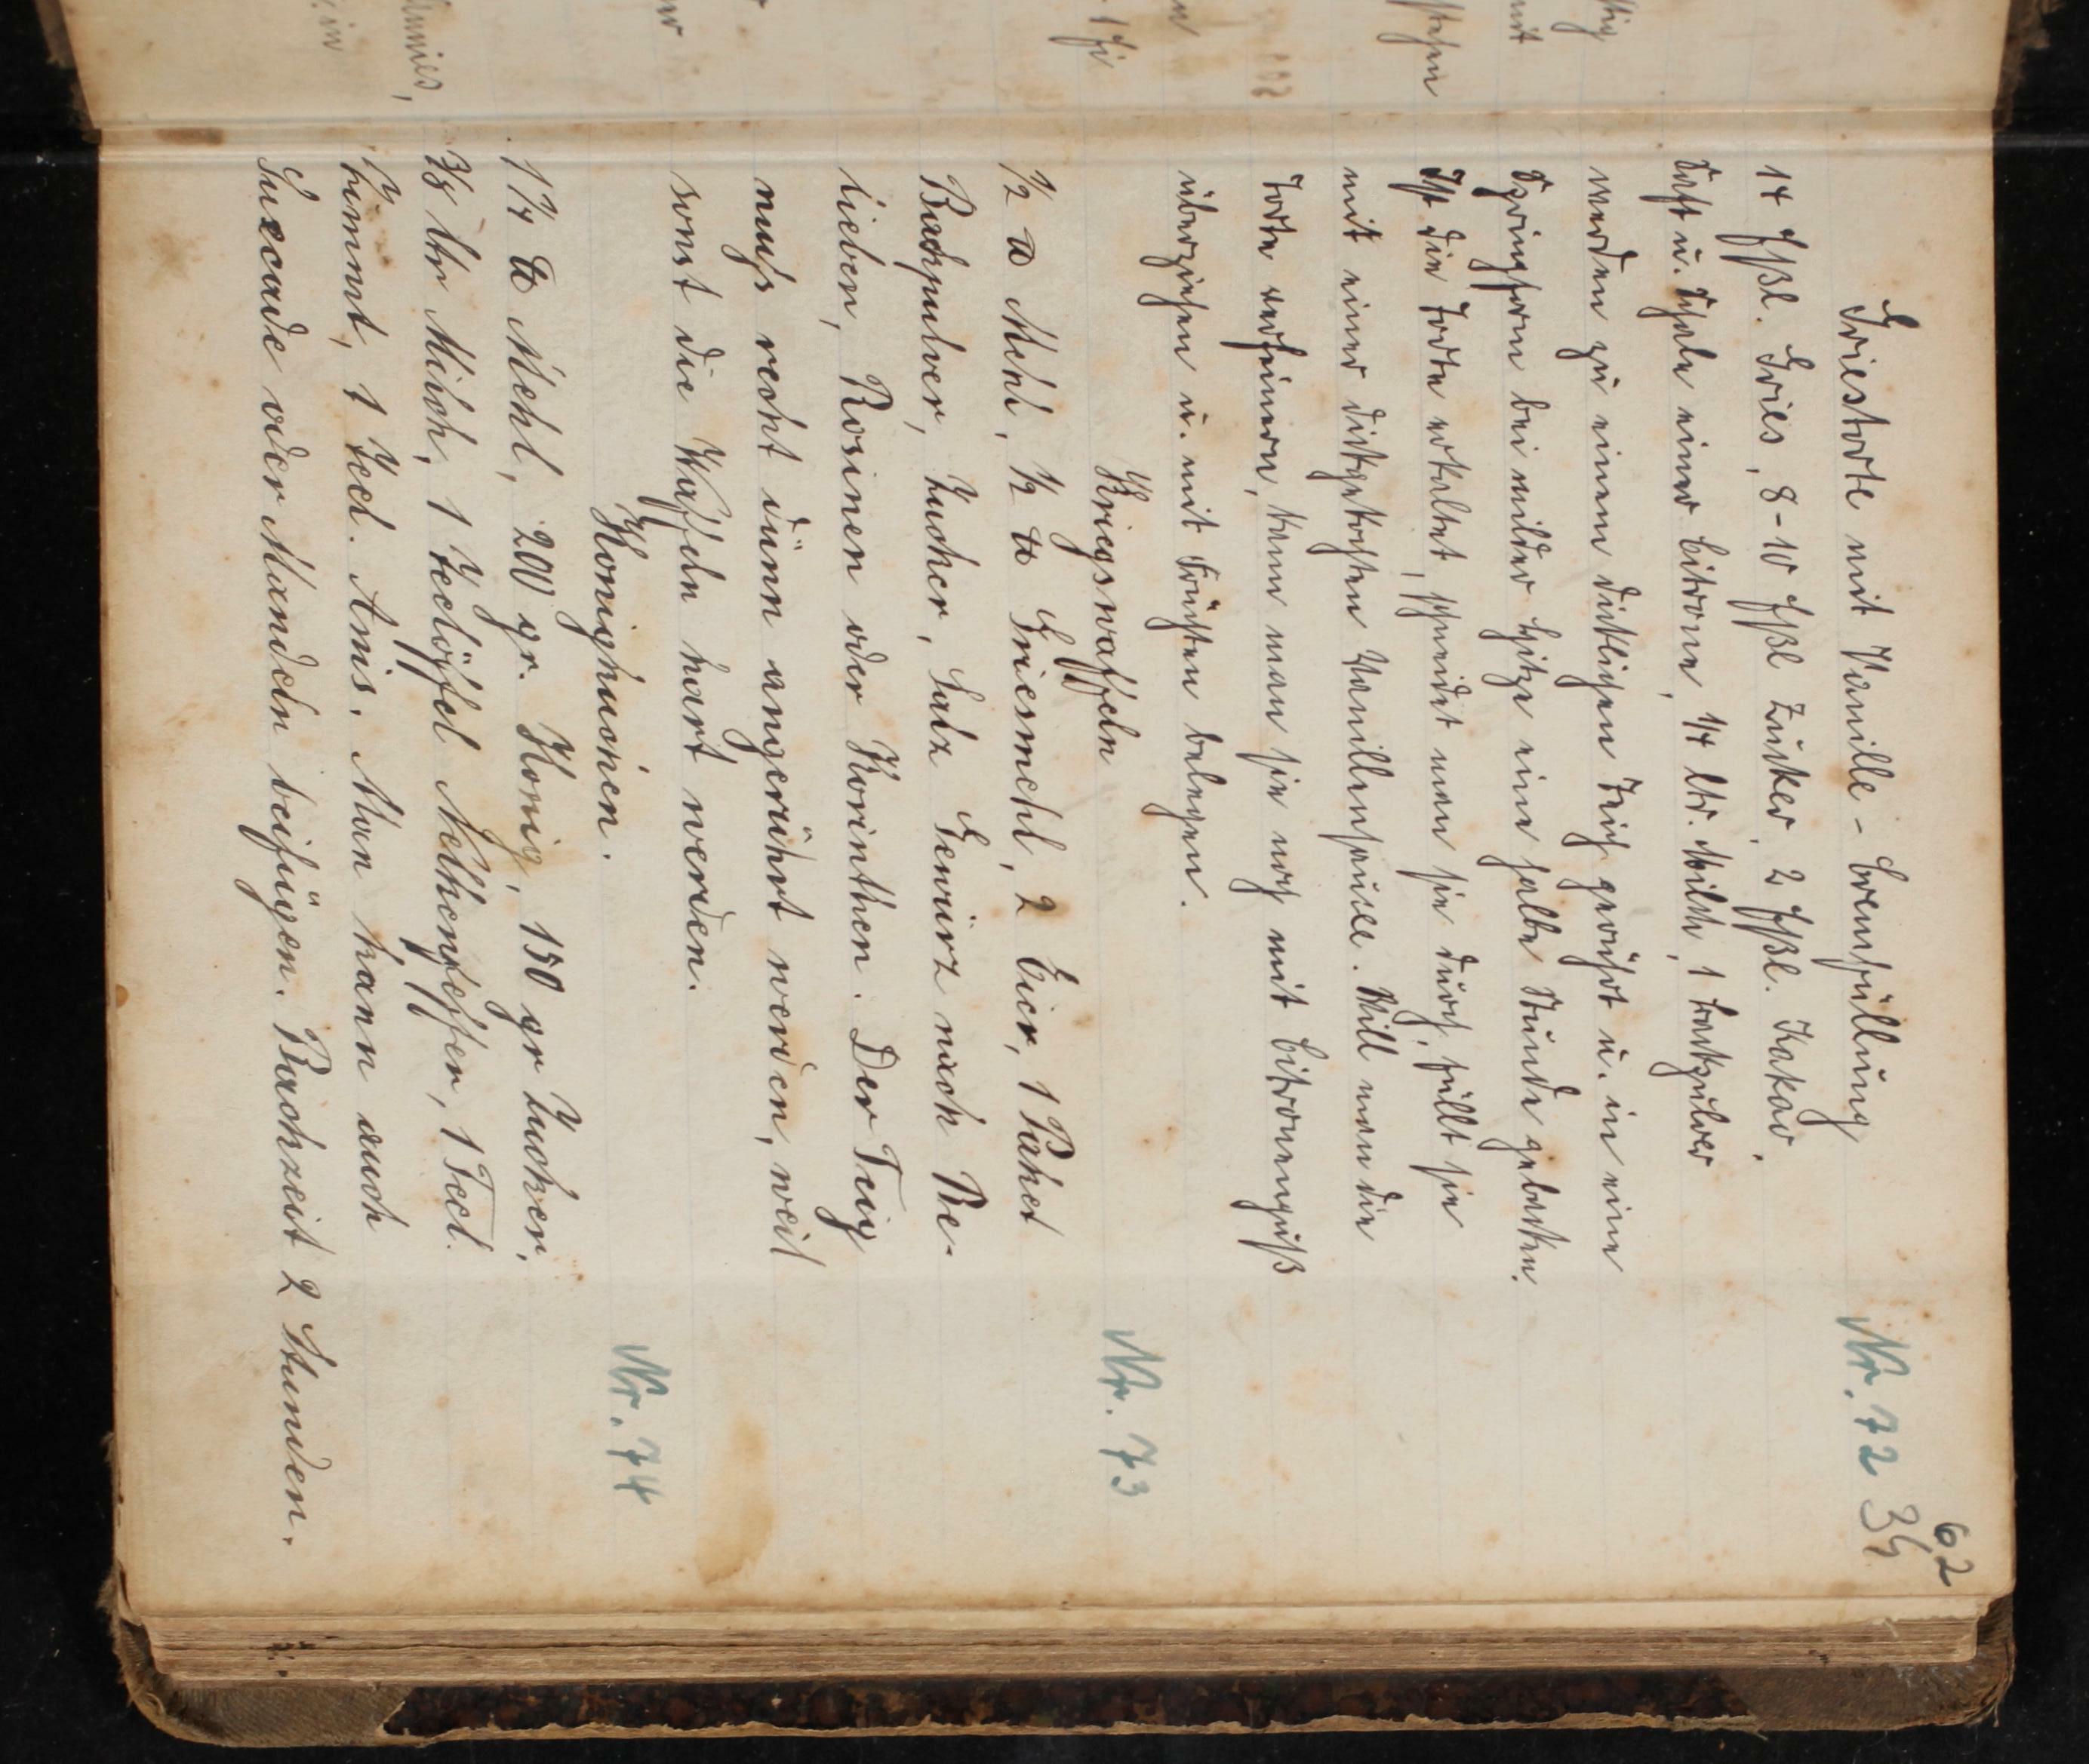 62
Griestorte mit Vanille-Cremfüllung Nr. 72 34
14 Eßl. Gries, 8-10 Eßl Zucker, 2 Eßl. Kakao,
Saft u. Schale einer Citrone, 1/4 ltr. Milch, 1 Backpulver
werden zu einem dicklichen Teig gerührt u. in eine
Springform bei milder Hitze eine halbe Stunde gebacken.
Ist die Torte erkaltet, schneidet man sie durch, füllt sie
mit einer dickgekochten Vanillensauce. Will man die
Torte verfeinern, kann man sie noch mit Citronenguß
überziehen u. mit Früchten belegen.
Kriegswaffeln Nr. 73
1/2 ℔ Mehl, 1/2 ℔ Griesmehl, 2 Eier, 1 Paket
Backpulver, Zucker, Salz Gewürz nach Be-
lieben, Rosinen oder Korinthen. Der Teig
muſs recht dünn angerührt werden, weil
sonst die Waffeln hart werden.
Honigkuchen. Nr. 74
1 1/4 ℔ Mehl, 200 gr. Honig, 150 gr Zucker,
3/8 ltr Milch, 1 Teelöffel Nelkenpfeffer, 1 Teel.
Zimmt, 1 Teel. Anis. Man kann auch
Succade oder Mandeln beifügen. Backzeit 2 Stunden.